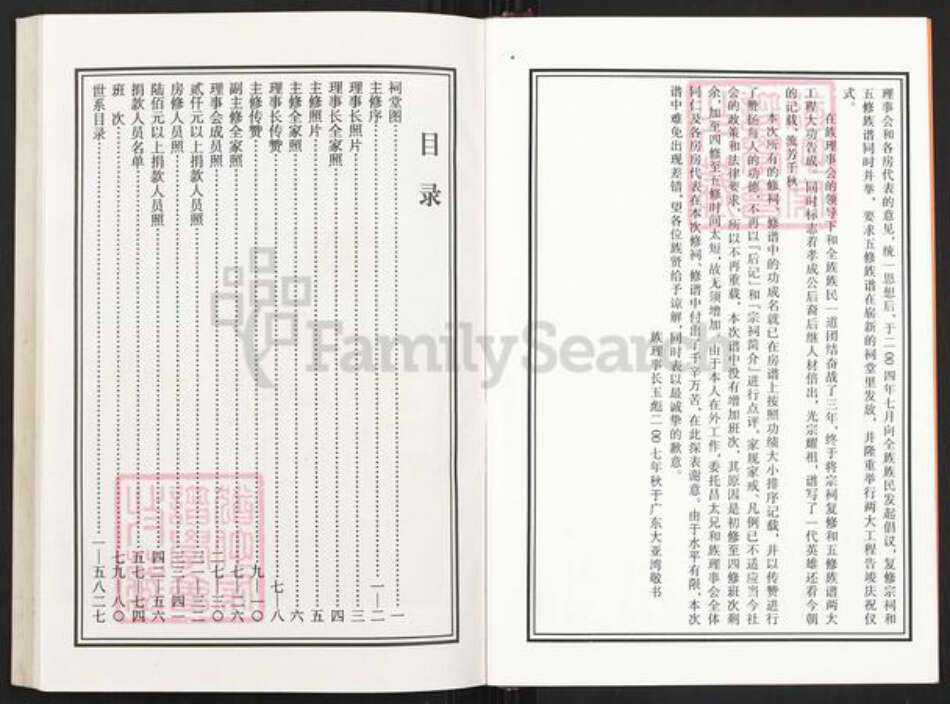 理事会和各房代表的意见，统一思想后，于二00四年七月向全族族民发起倡议，复修宗祠和
五修族谱同时并举，要求五修族谱在崭新的祠堂里发放，并隆重举行两大工程告竣庆祝仪
式。
在族理事会的领导下和全族族民一道团结奋战了三年，终于将宗祠复修和五修族谱两大
工程大功告成，同时标志着孝成公后裔后继人材倍出，光宗耀祖，谱写了一代英雄还看今朝
的记载，流芳千秋
本次所有的修祠、修谱中的功成名就已在房谱上按照功绩大小排序记载，并以传赞进行
了赞扬每人的功德，不再以「后记」和「宗祠简介」进行点评。家规家戒、凡例已不适应当今社
会的政策和法律要求，所以不再重载，本次谱中没有增加班次，其原因是初修至四修班次剩
余，加至四修至五修时间太短，故无须增加，由于本人在外工作，委托昌太兄和族理事会全体
同仁及各房房代表在本次修祠、修谱中付出了千辛万苦，在此深表谢意。由于水平有限，本次
谱中难免出现差错，望各位族贤给予谅解，同时表以最诚挚的歉意。
族理事长玉彪二00七年秋于广东大亚湾敬书
目录
祠堂图 一
主修序 一—二
理事长照片 三
理事长全家照 四
主修照片 五
主修全家照 六
理事长传赞 七—八
主修传赞 九—一〇
副主修全家照
理事会成员照
贰仟元以上捐款人员照
房修人员照
陆佰元以上捐款人员照
捐款人员名单
班次 七九—八〇
世系目录 一—五八二七
FamilySearch